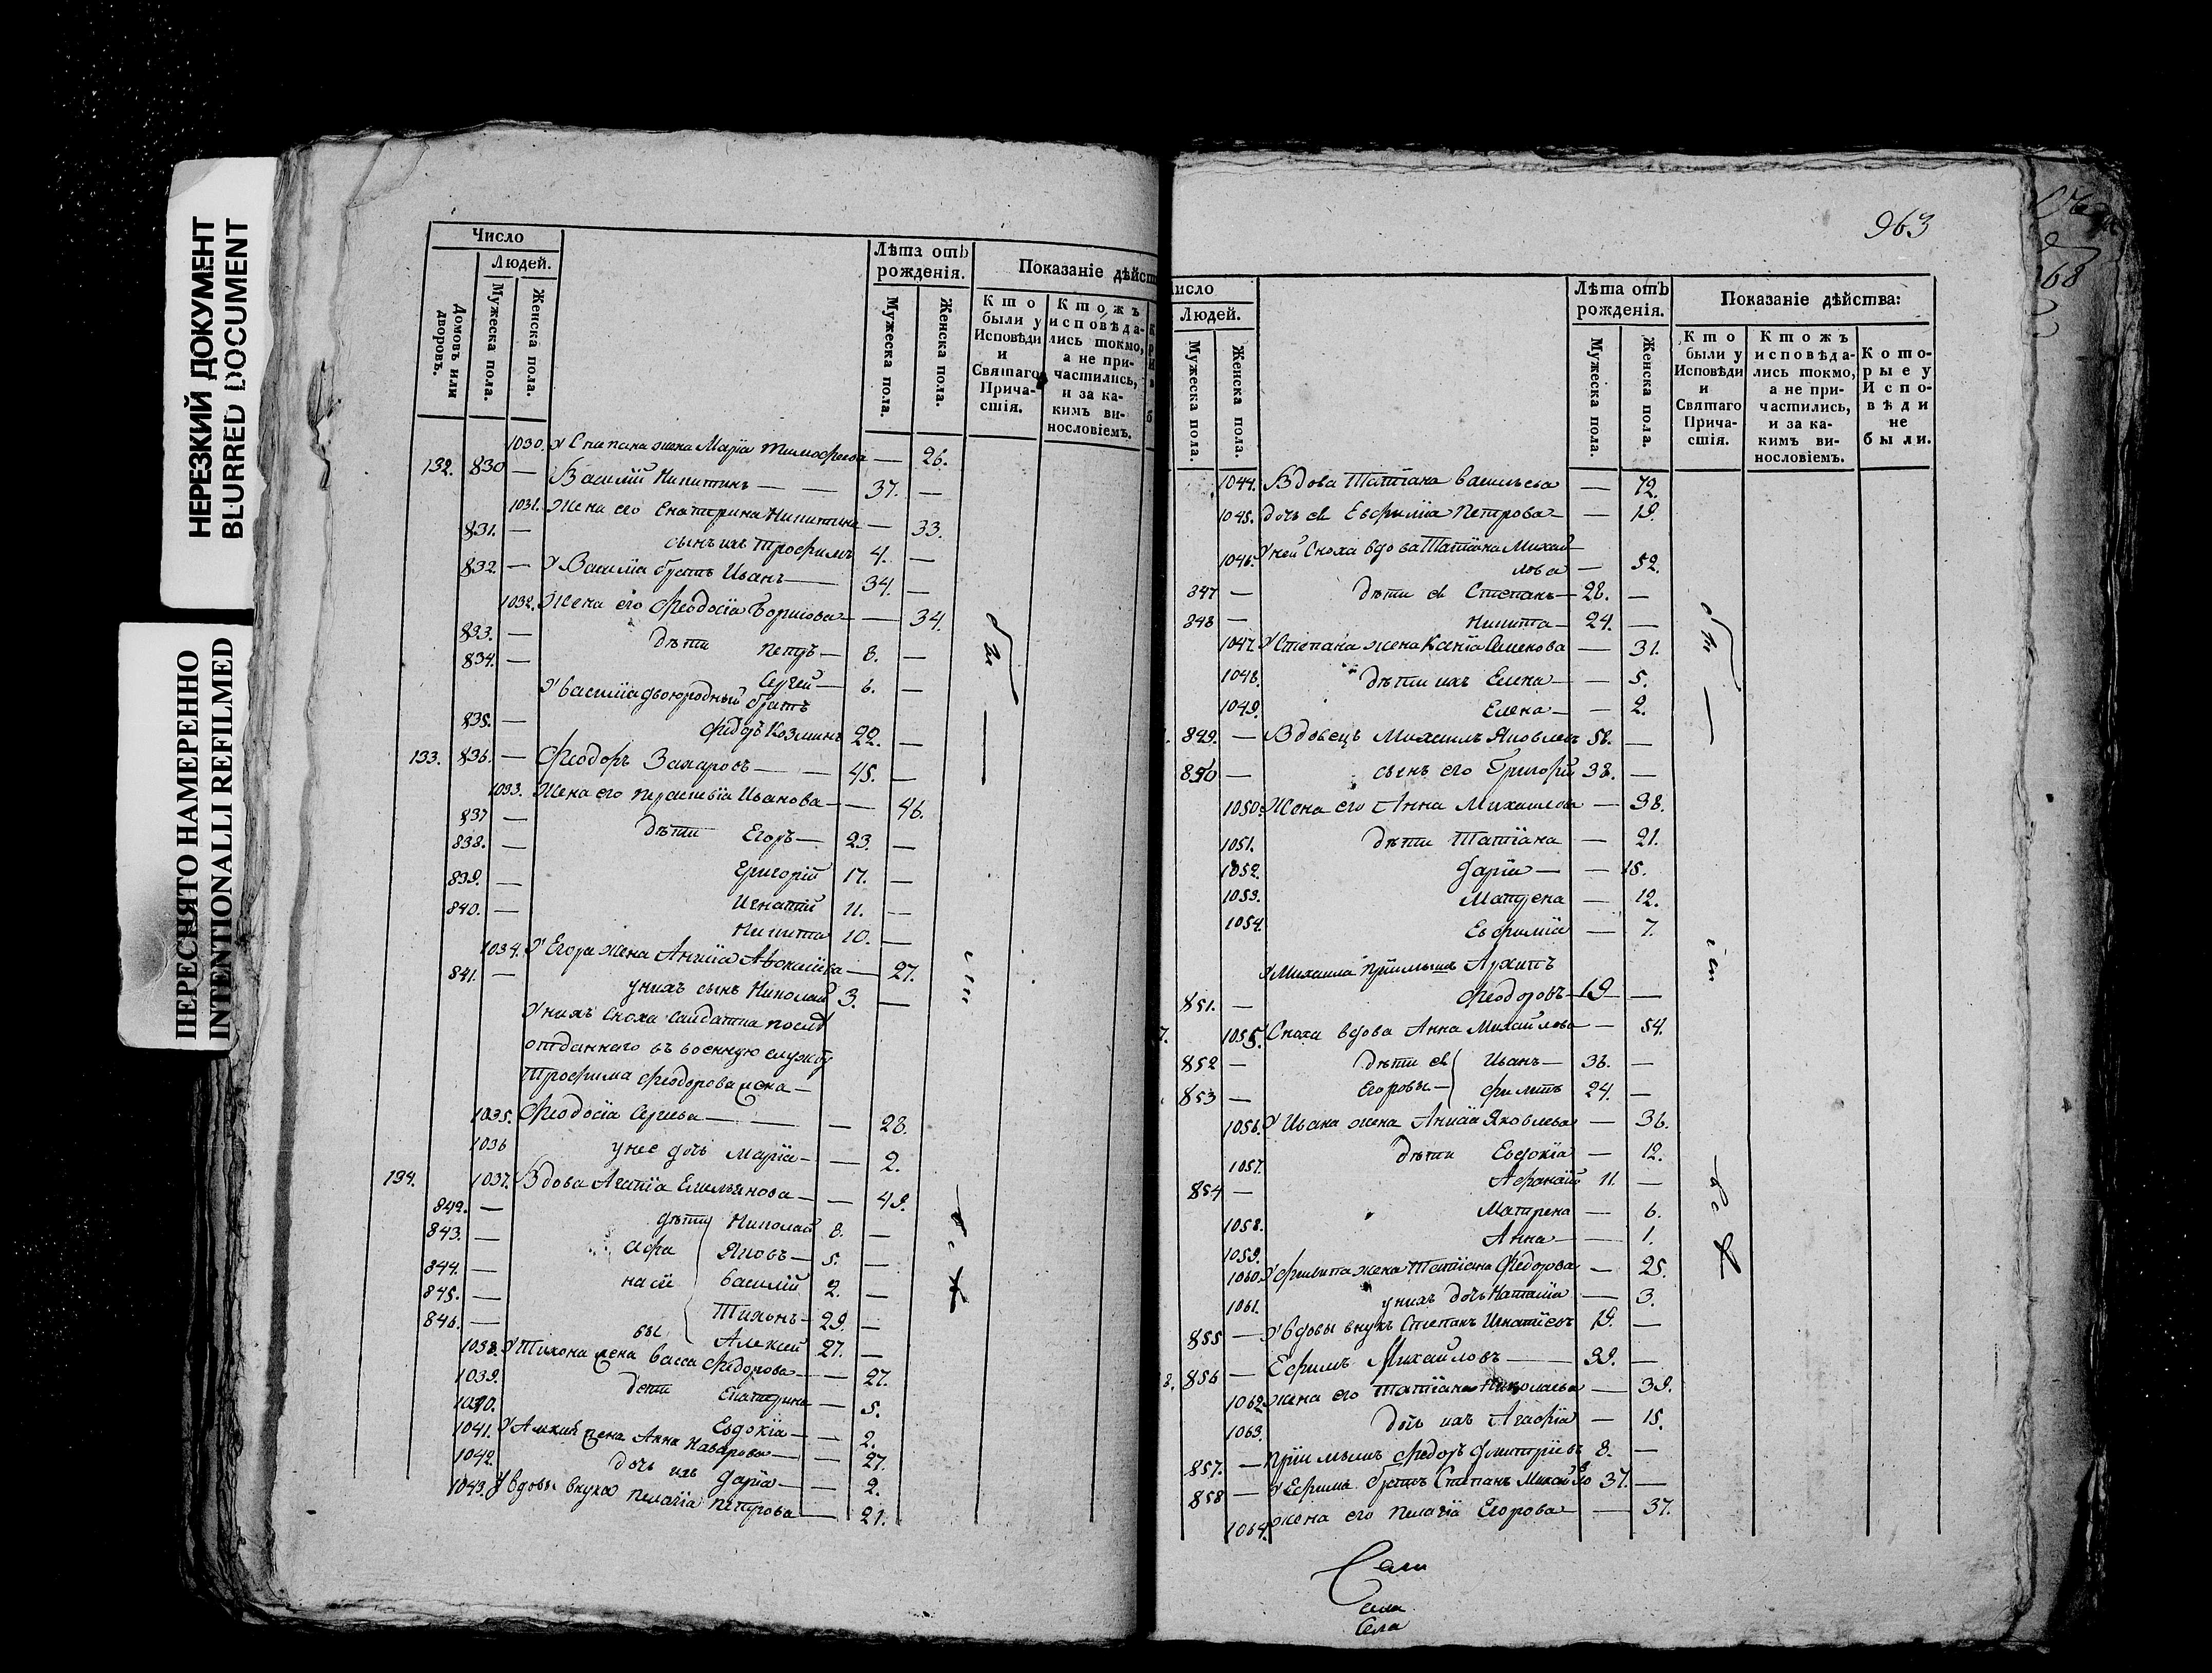 НЕРЕЗКИЙ ДОКУМЕНТ
BLURRED DOCUMENT
ПЕРЕСНЯТО НАМЕРЕННО
INTENTIONALLI REFILMED
Число
Людей.
Домовъ или дворовъ.
Мужеска пола.
Женска пола.
Лѣта отъ рожденія.
Мужеска пола.
Женска пола.
Показаніе дѣйст
Кто были у Исповѣди и Святаго Прича-стія.
Ктожъ исповѣда-лись токмо, а не при-частились, и за ка-кимъ ви-нословіемъ.
1030. У Степана жена Марія Тимофеева — 26.
132. 830 — Василій Никитинъ — — 37. —
1031. Жена его Екатерина Никитина — 33.
831. — сынъ ихъ Трофимъ 4. —
832. — У Василія братъ Иванъ — 34. —
1032. Жена его Феодосія Борисова — — 34.
833. — дѣти Петръ — 8. —
834. — Сергей — 6. —
У Василія двоюродный братъ
835. — Федоръ Козминъ 22. —
133. 836. — Феодоръ Захаровъ — — 45. —
1033. Жена его Параскевія Иванова — — 46.
837 — дѣти Егоръ — 23. —
838. — Григорій 17. —
839. — Игнатій 11. —
840. — Никита 10. —
1034. У Егора жена Анисія Авоксіева — 27.
841. — у нихъ сынъ Николай 3. —
У нихъ сноха салдатка послѣ
отданнаго въ военную службу
Трофима Феодорова жена —
1035. Феодосія Сергеева — — — 28.
1036 у нее дочь Марія — — 2.
134. 1037. Вдова Агапія Емельянова — — 49.
842. — дѣти Николай 8. —
843. — Афа Яковъ — 5. —
844. — насіе Василій 2. —
845. — Тихонъ — 29. —
846. — вы Алексей 27. —
1038. У Тихона жена Васса Федорова — — 27.
1039. дѣти Екатерина — 5.
1040. Евдокія — — 2.
1041. У Алексея жена Анна Назарова — — 27.
1042. дочь ихъ Дарія — — 2.
1043. У вдовы внука Пелагія Петрова — 21.
963
число
Людей.
Мужеска пола.
Женска пола.
Лѣта отъ рожденія.
Мужеска пола.
Женска пола.
Показаніе дѣйства:
Кто были у Исповѣди и Святаго Прича-стія.
Ктожъ исповѣда-лись токмо, а не при-частились, и за ка-кимъ ви-нословіемъ.
Кото-рые у Испо-вѣди не были.
1044. Вдова Татіана Васильева — 72.
1045. дочь ея Евфимія Петрова — — 19.
1046. У ней сноха вдова Татіана Михай
лова — 52.
847 — дѣти ея Степанъ — 28. —
848 — Никита — 24. —
1047. У Степана жена Ксенія Семенова — 31.
1048. дѣти ихъ Елена — — 5.
1049. Елена — — 2.
849. — Вдовецъ Михаилъ Яковлевъ 58. —
850 — сынъ его Григорій 38. —
1050. Жена его Анна Михаилова — 38.
1051. дѣти Татіана — 21.
1052. Дарія — — 15.
1053. Матрена — 12.
1054. Евфимія — 7.
У Михаила пріимышъ Архипъ
851. — Феодоровъ — 19 —
1055. Сноха вдова Анна Михайлова — 54.
852 — дѣти ея Иванъ — 36. —
853 — Егоровы — Филипъ 24. —
1056. У Ивана жена Анисія Яковлева — 36.
1057. дѣти Евдокія — 12.
854 — Афанасій 11. —
1058. Матрена — 6.
1059. Анна — — 1.
1060. У Филипа жена Татіана Федорова — 25.
1061. у нихъ дочь Наталія — 3.
855 — У вдовы внукъ Степанъ Игнатіевъ 19. —
8. 856 — Ефимъ Михайловъ — 39. —
1062. жена его Татіана Николаева — 39.
1063. дочь ихъ Агафія — 15.
857. — Пріимышъ Федоръ Дмитріевъ 8. —
858 — У Ефима братъ Степанъ Михайло 37. —
1064. жена его Пелагія Егорова — 37.
Села